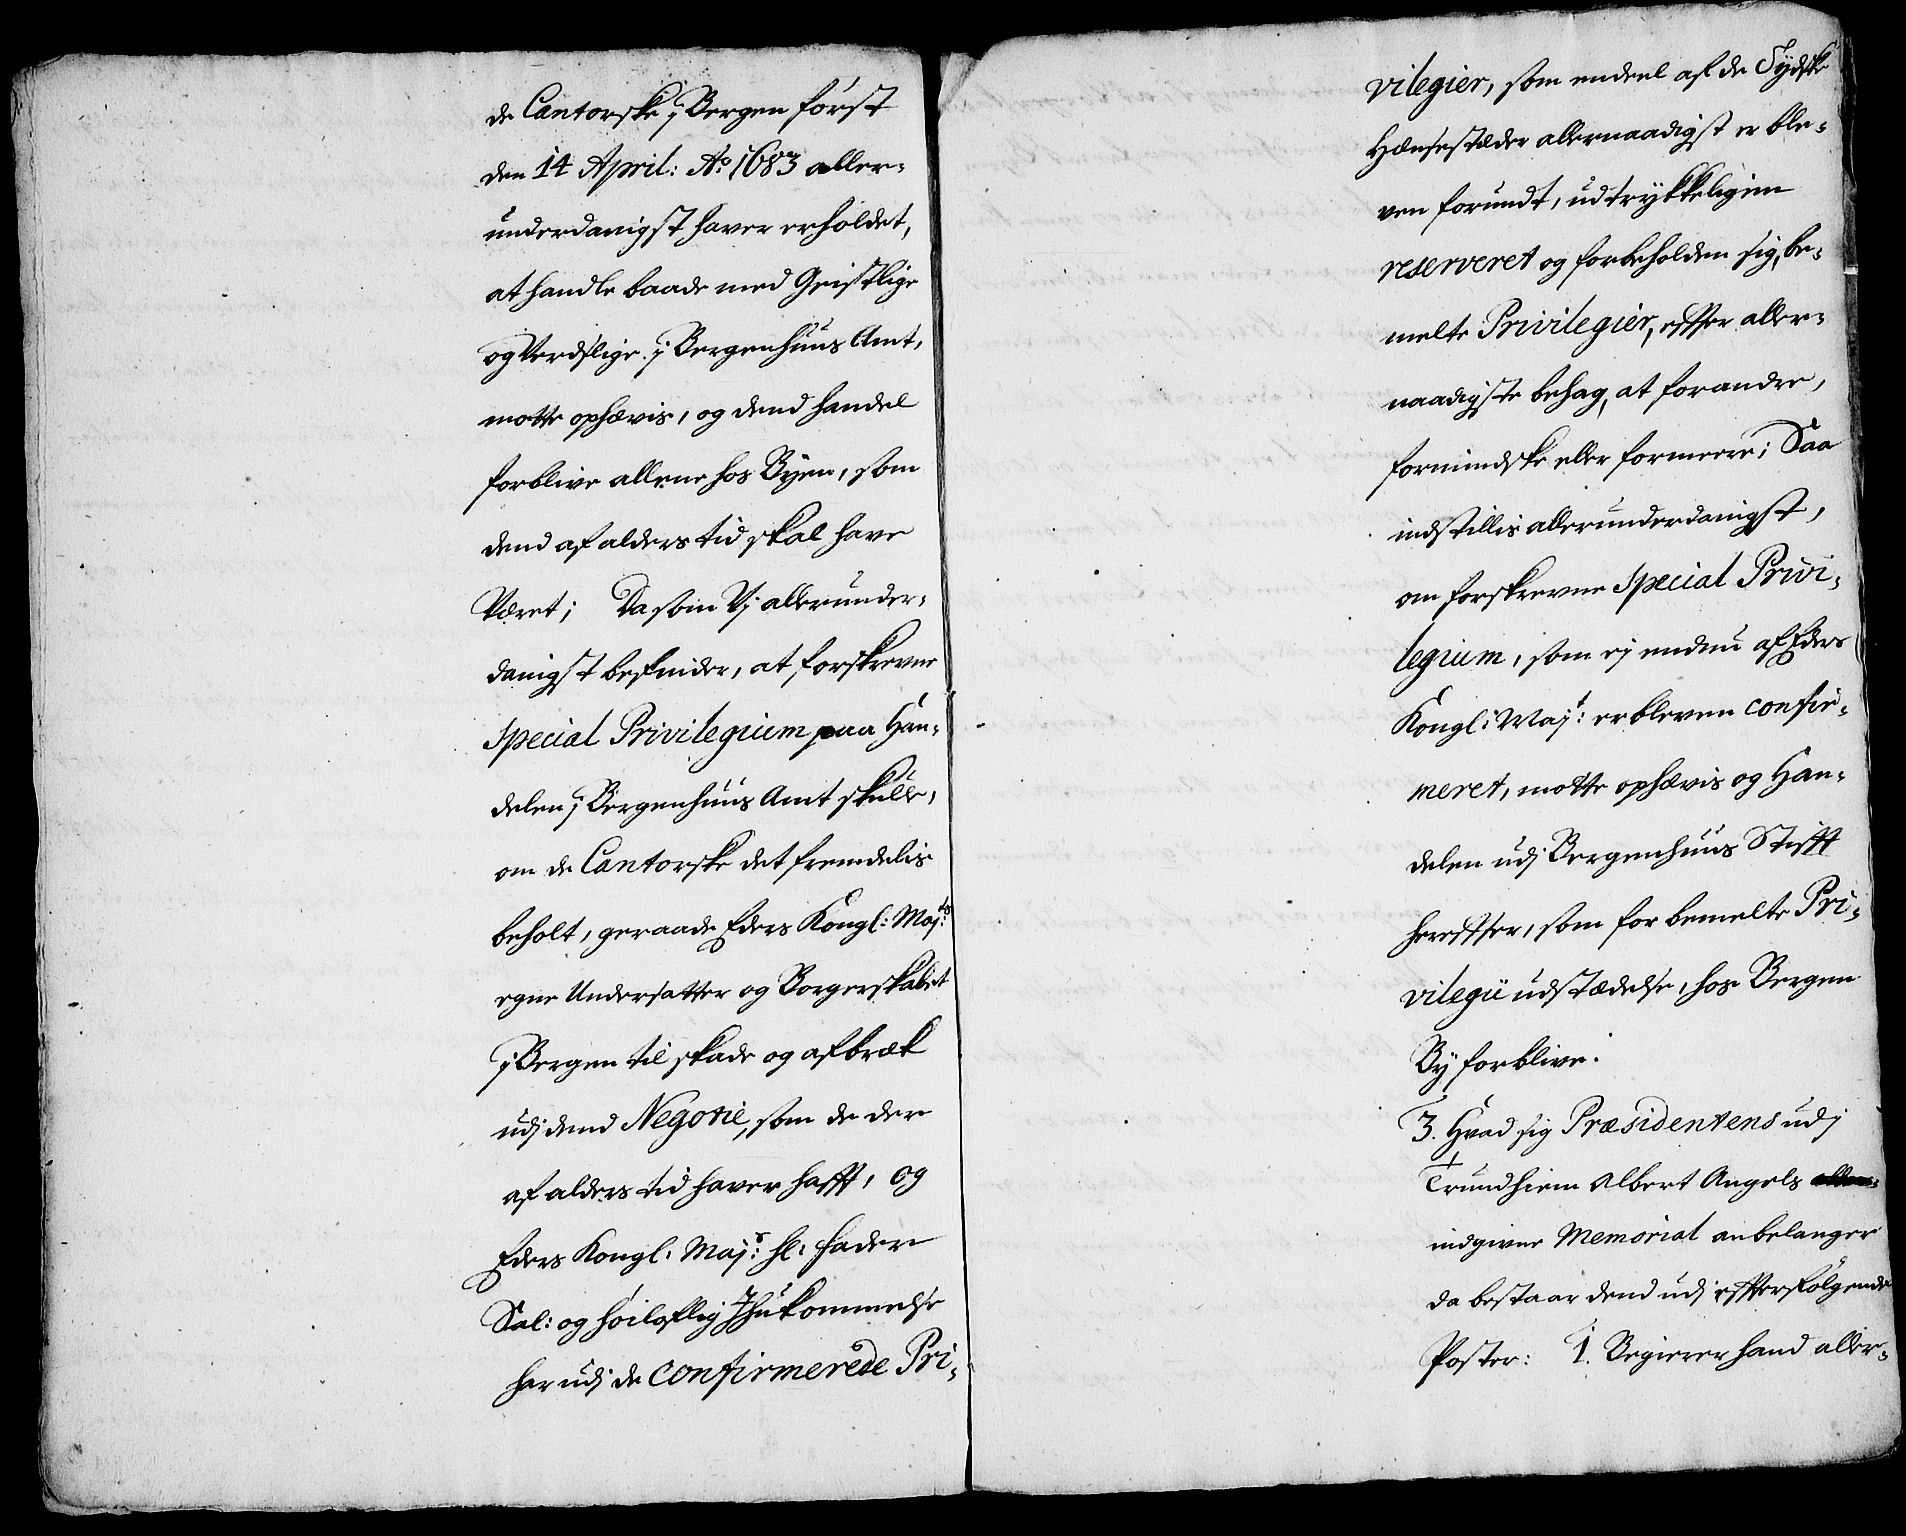 de Cantorske j Bergen først
den 14 April: Ao. 1683 aller-
underdanigst haver erholdet,
at handle baade med Geistlige
og Verdslige j Bergenhuus Amt,
motte ophævis, og dend handel
forblive allene hos Byen, som
dend af alders tid skal have
Været; Da som Vj allerunder-
danigst befinder, at forskrevne
Special Privilegium paa Han-
delen j Bergenhuus Amt skulle,
om de Cantorske det fremdelis
beholt, geraade Eders Kongl: Majts:
egne Undersatter og Borgerskabet
j Bergen til skade og afbræk
udj dend Negotie, som de der
af alders tid haver hafft, og
Eders Kongl: Majts: hl: fader
Sal: og høiloflig Jhukommelse
har udj de confirmerede Pri-
vilegier, som endeel af de Tydske
Hænsestæder allernaadigst er ble-
ven forundt, udtrykkeligen
reserveret og forbeholden sig, be-
melte Privilegier, effter aller-
naadigste behag, at forandre,
formindske eller formeere; Saa
indstillis allerunderdanigst,
om forskrevne Special Privi-
legium, som ej endnu af Eders
Kongl: Majt: er bleven confir-
meret, motte ophævis og Han-
delen udj Bergenhuus Stifft
hereffter, som for bemelte Pri-
vilegii udstædelse, hos Bergen
By forblive.
3. Hvad sig Præsidentens udj
Trundhiem Albert Angels
indgivne Memorial anbelanger
da bestaar dend udj effterfølgende
Poster: 1. Begierer hand aller-